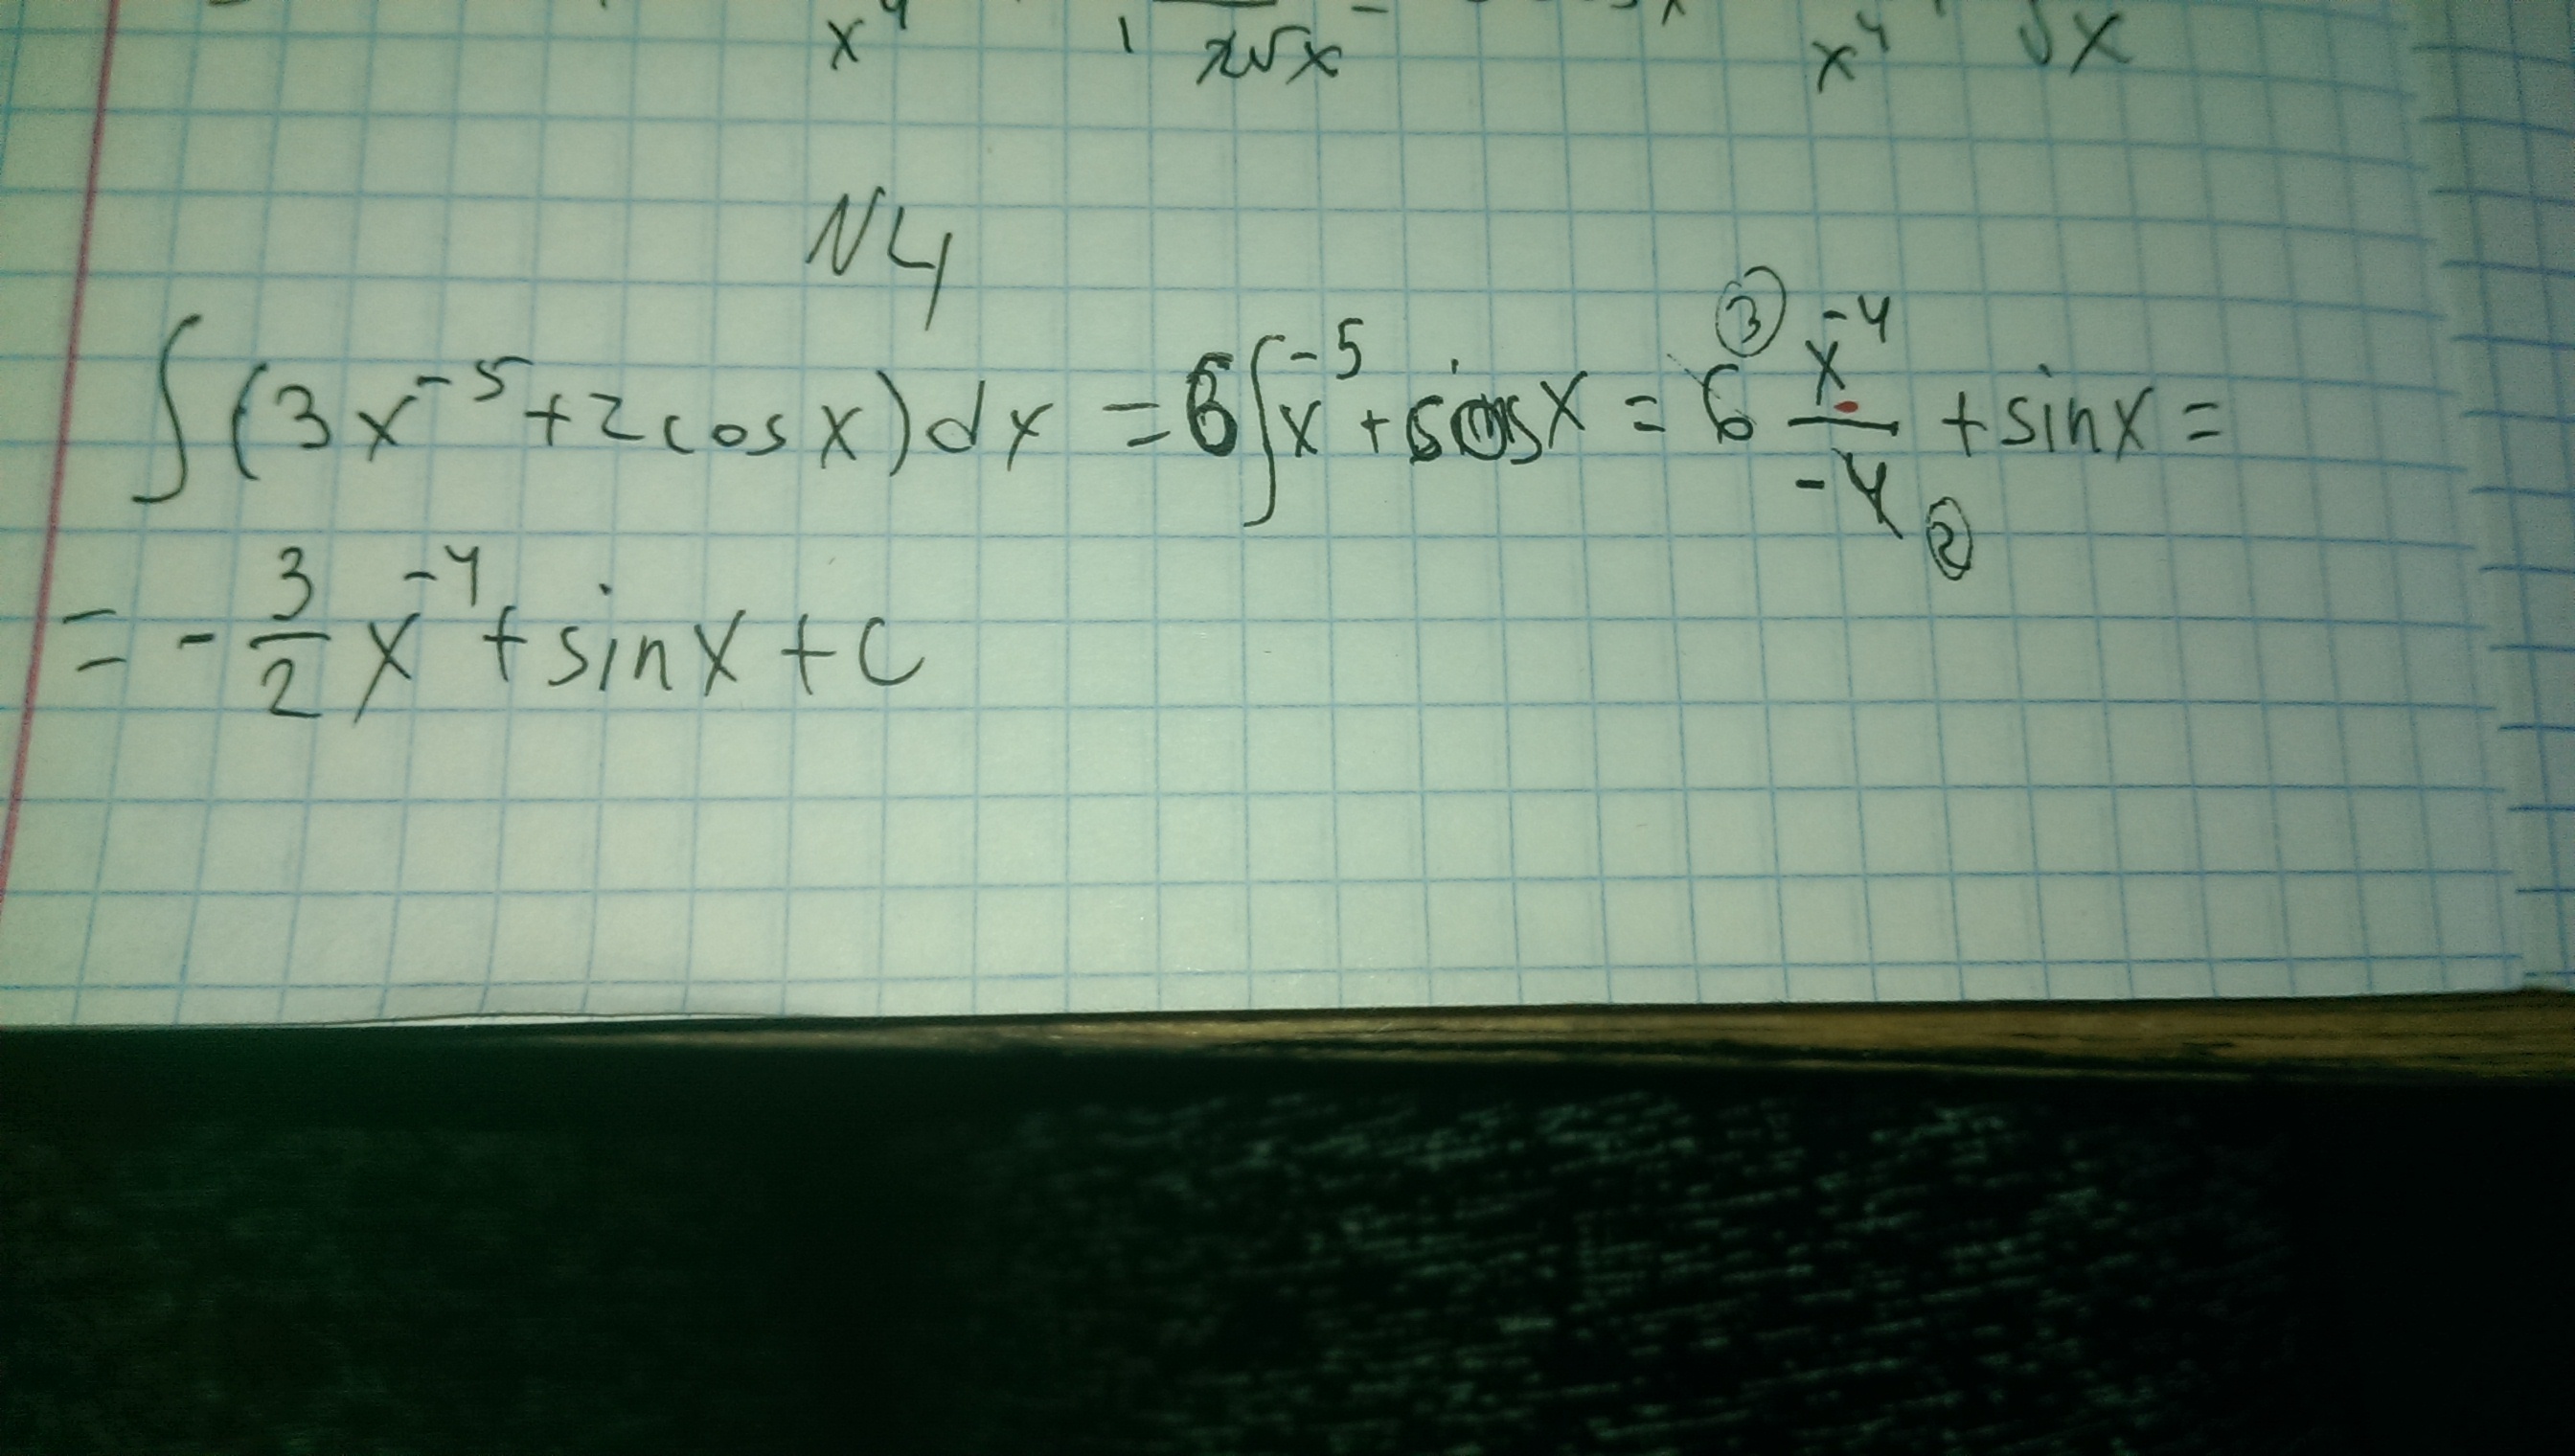 x⁴ 2√x x⁴ √x
N4
∫(3x⁻⁵+2cosx)dx = 6∫x⁻⁵+sinx = 6 ③ x⁻⁴/-4 ② +sinx =
= -3/2 x⁻⁴+sinx+c